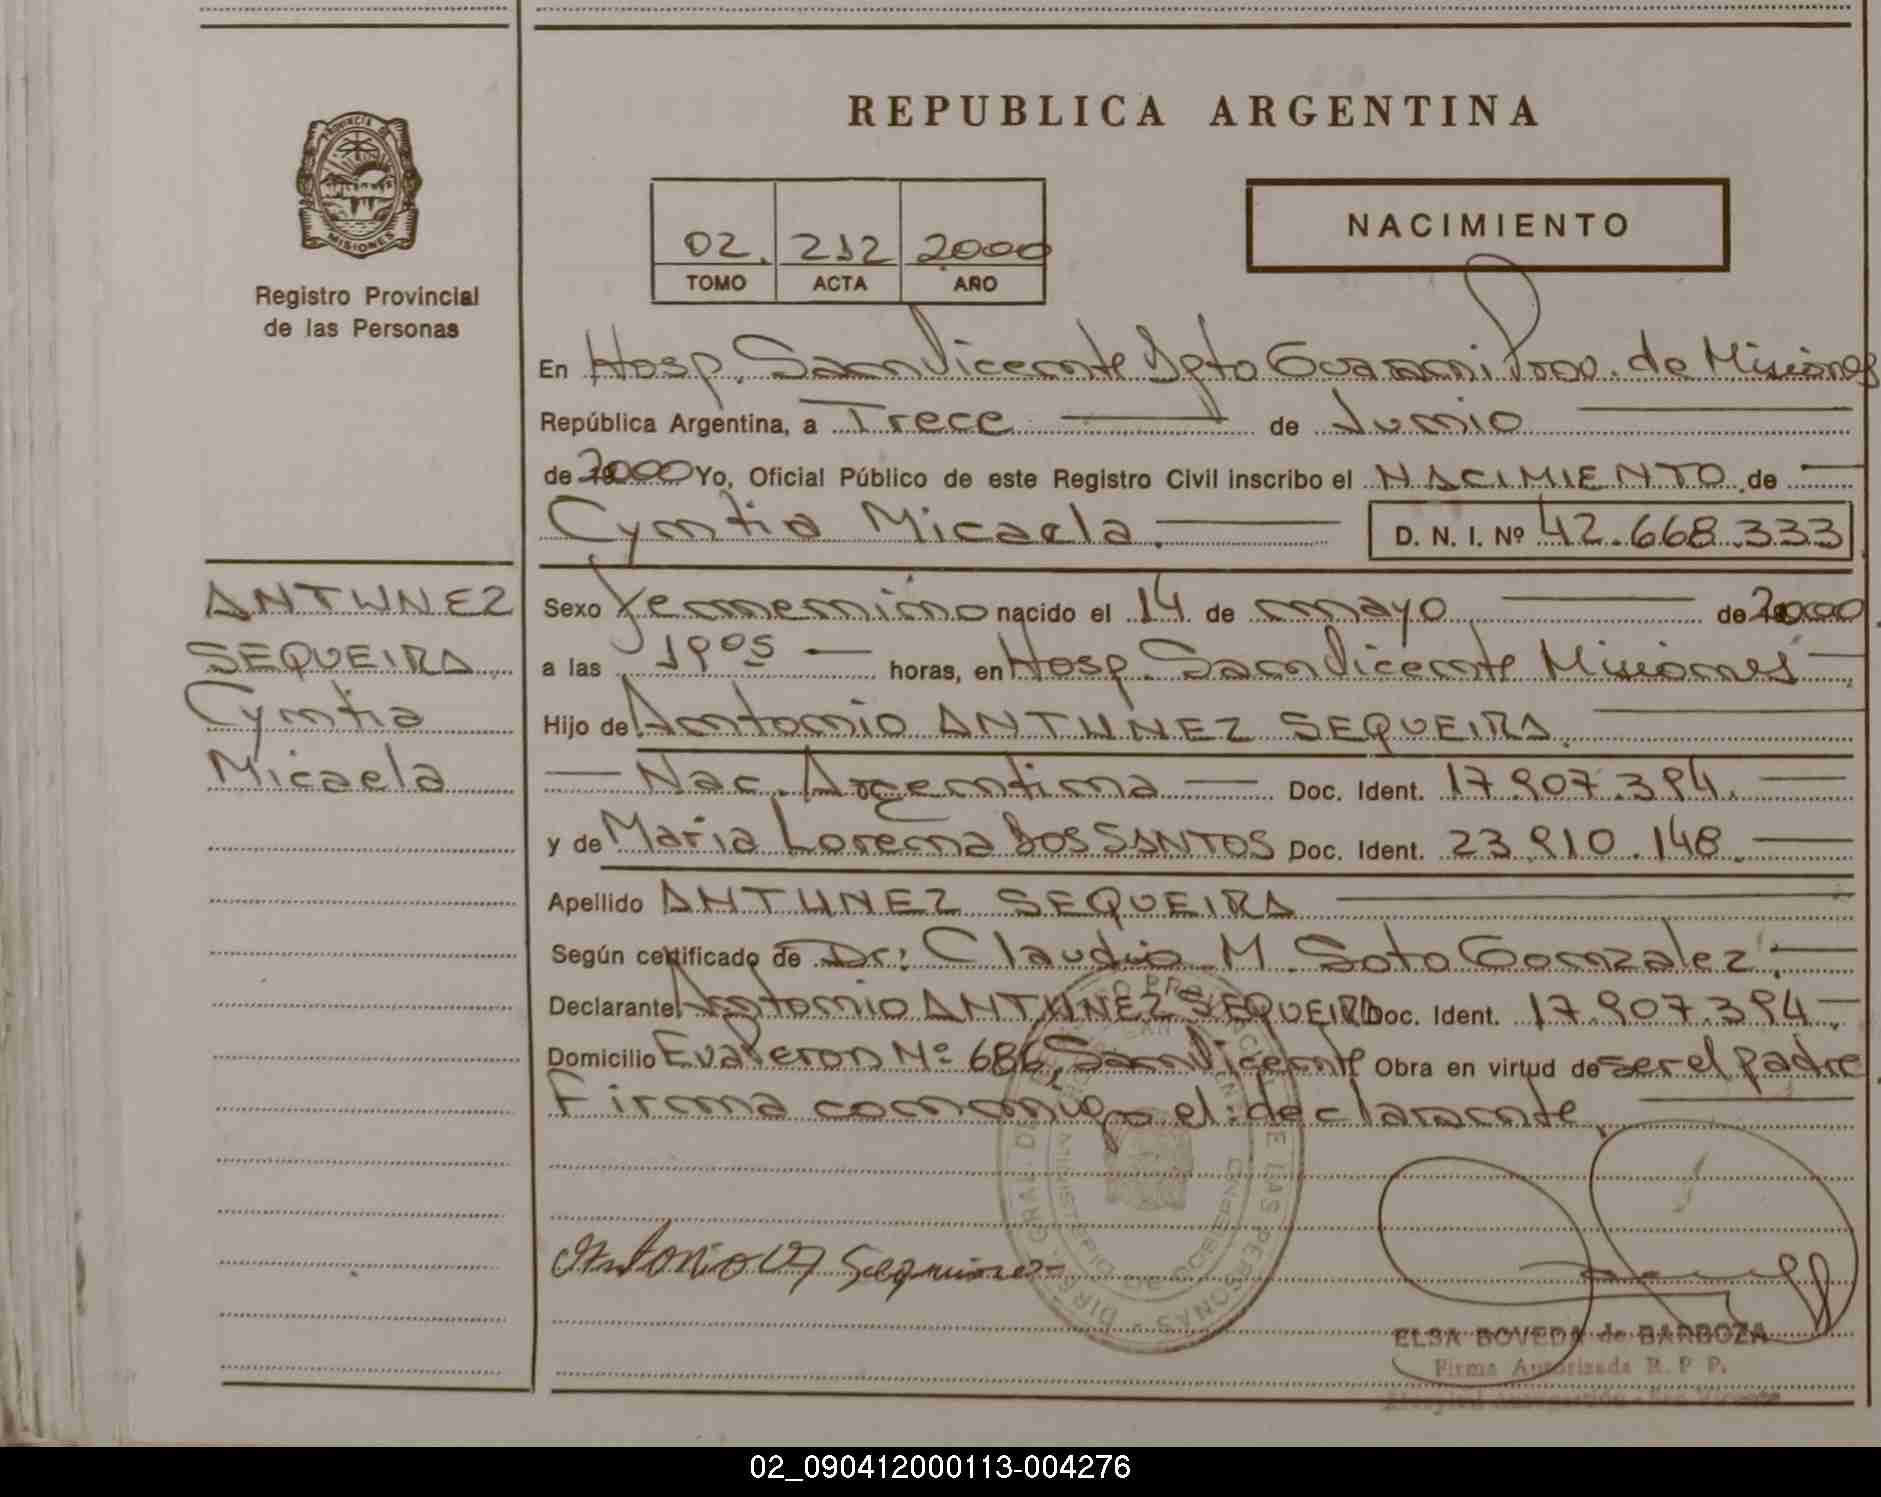 REPUBLICA ARGENTINA
PROVINCIA DE
MISIONES
Registro Provincial
de las Personas
02. 212 2000
TOMO ACTA AÑO
NACIMIENTO
En Hosp. San Vicente Dpto Guarani Prov. de Misiones
República Argentina, a Trece de Junio
de 2000 Yo, Oficial Público de este Registro Civil inscribo el NACIMIENTO de
Cyntia Micaela. D. N. I. Nº 42.668.333
ANTUNEZ
SEQUEIRA
Cyntia
Micaela
Sexo femenino nacido el 14 de mayo de 2000
a las 1905 horas, en Hosp. San Vicente Misiones
Hijo de Antonio ANTUNEZ SEQUEIRA.
Nac. Argentina Doc. Ident. 17.907.394.
y de Maria Lorena Dos SANTOS Doc. Ident. 23.910.148.
Apellido ANTUNEZ SEQUEIRA
Según certificado de Dr: Claudio M. Soto Gonzalez.
Declarante Antonio ANTUNEZ SEQUEIRA Doc. Ident. 17.907.394.
Domicilio Eva Peron Nº 686, San Vicente Obra en virtud de ser el padre
Firma conmigo el declarante.
Antonio
ELSA BOVEDA de BARBOZA
Firma Autorizada R. P P.
02_090412000113-004276